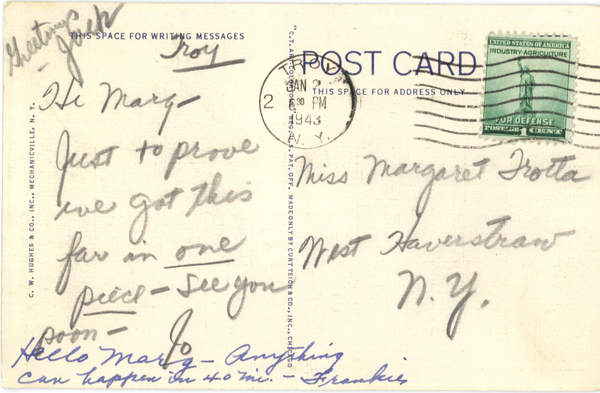 Greetings
- Jack
THIS SPACE FOR WRITING MESSAGES
Troy
Hi Marg-
Just to prove
we got this
far in one
piece - See you
soon -
Jo
Hello Marg - Anything
can happen in 40 mi. - Frankie
C. W. HUGHES & CO., INC., MECHANICVILLE, N. Y.
POST CARD
THIS SPACE FOR ADDRESS ONLY
TROY
JAN 2
2 30 PM
1943
N. Y.
UNITED STATES OF AMERICA
INDUSTRY-AGRICULTURE
FOR DEFENSE
POSTAGE 1 CENT
Miss Margaret Trotta
West Haverstraw
N.Y.
REG. U. S. PAT. OFF. MADE ONLY BY CURT TEICH & CO., INC., CHICAGO